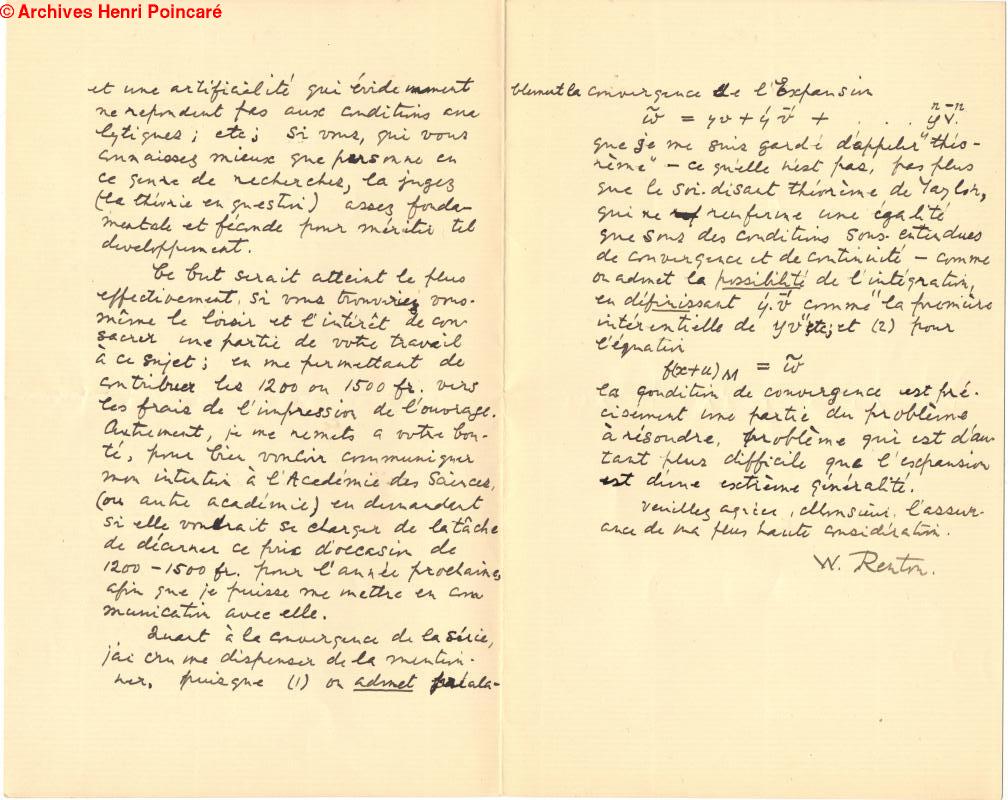 © Archives Henri Poincaré
et une artificialité qui évidemment
ne repondent pas aux conditions ana
lytiques; etc; si vous, qui vous
connaissez mieux que personne en
ce genre de recherches, la jugez
(la théorie en question) assez fonda-
mentale et féconde pour mériter tel
developpement.
Ce but serait atteint le plus
effectivement, si vous trouviez vous-
même le loisir et l'intérêt de con
sacrer une partie de votre travail
à ce sujet; en me permettant de
contribuer les 1200 ou 1500 fr. vers
les frais de l'impression de l'ouvrage.
Autrement, je me remets a votre bon-
té, pour bien vouloir communiquer
mon intention à l'Académie des Sciences,
(ou autre académie) en demandant
si elle voudrait se charger de la tâche
de décerner ce prix d'occasion de
1200 – 1500 fr. pour l'année prochaine,
afin que je puisse me mettre en com
munication avec elle.
Quant à la convergence de la série,
j'ai cru me dispenser de la mention-
ner, puisque (1) on admet préala-
blement la convergence de l'Expansion
w̃ = yv + ý v̄ + . . .
que je me suis gardé d'appeler "théo-
rème" – ce qu'elle n'est pas, pas plus
que le soi-disant théorème de Taylor,
qui ne renferme une égalité
que sous des conditions sous-entendues
de convergence et de continuité – comme
on admet la possibilité de l'intégration,
en définissant ý.v̄ comme "la première
intérentielle de yv" etc; et (2) pour
l'équation
f(x+u)M = w̃
la condition de convergence est pré-
cisement une partie du problème
à résoudre, problème qui est d'au-
tant plus difficile que l'expansion
est d'une extrême généralité.
Veuillez agréer, Monsieur, l'assur-
ance de ma plus haute considération.
W. Renton.